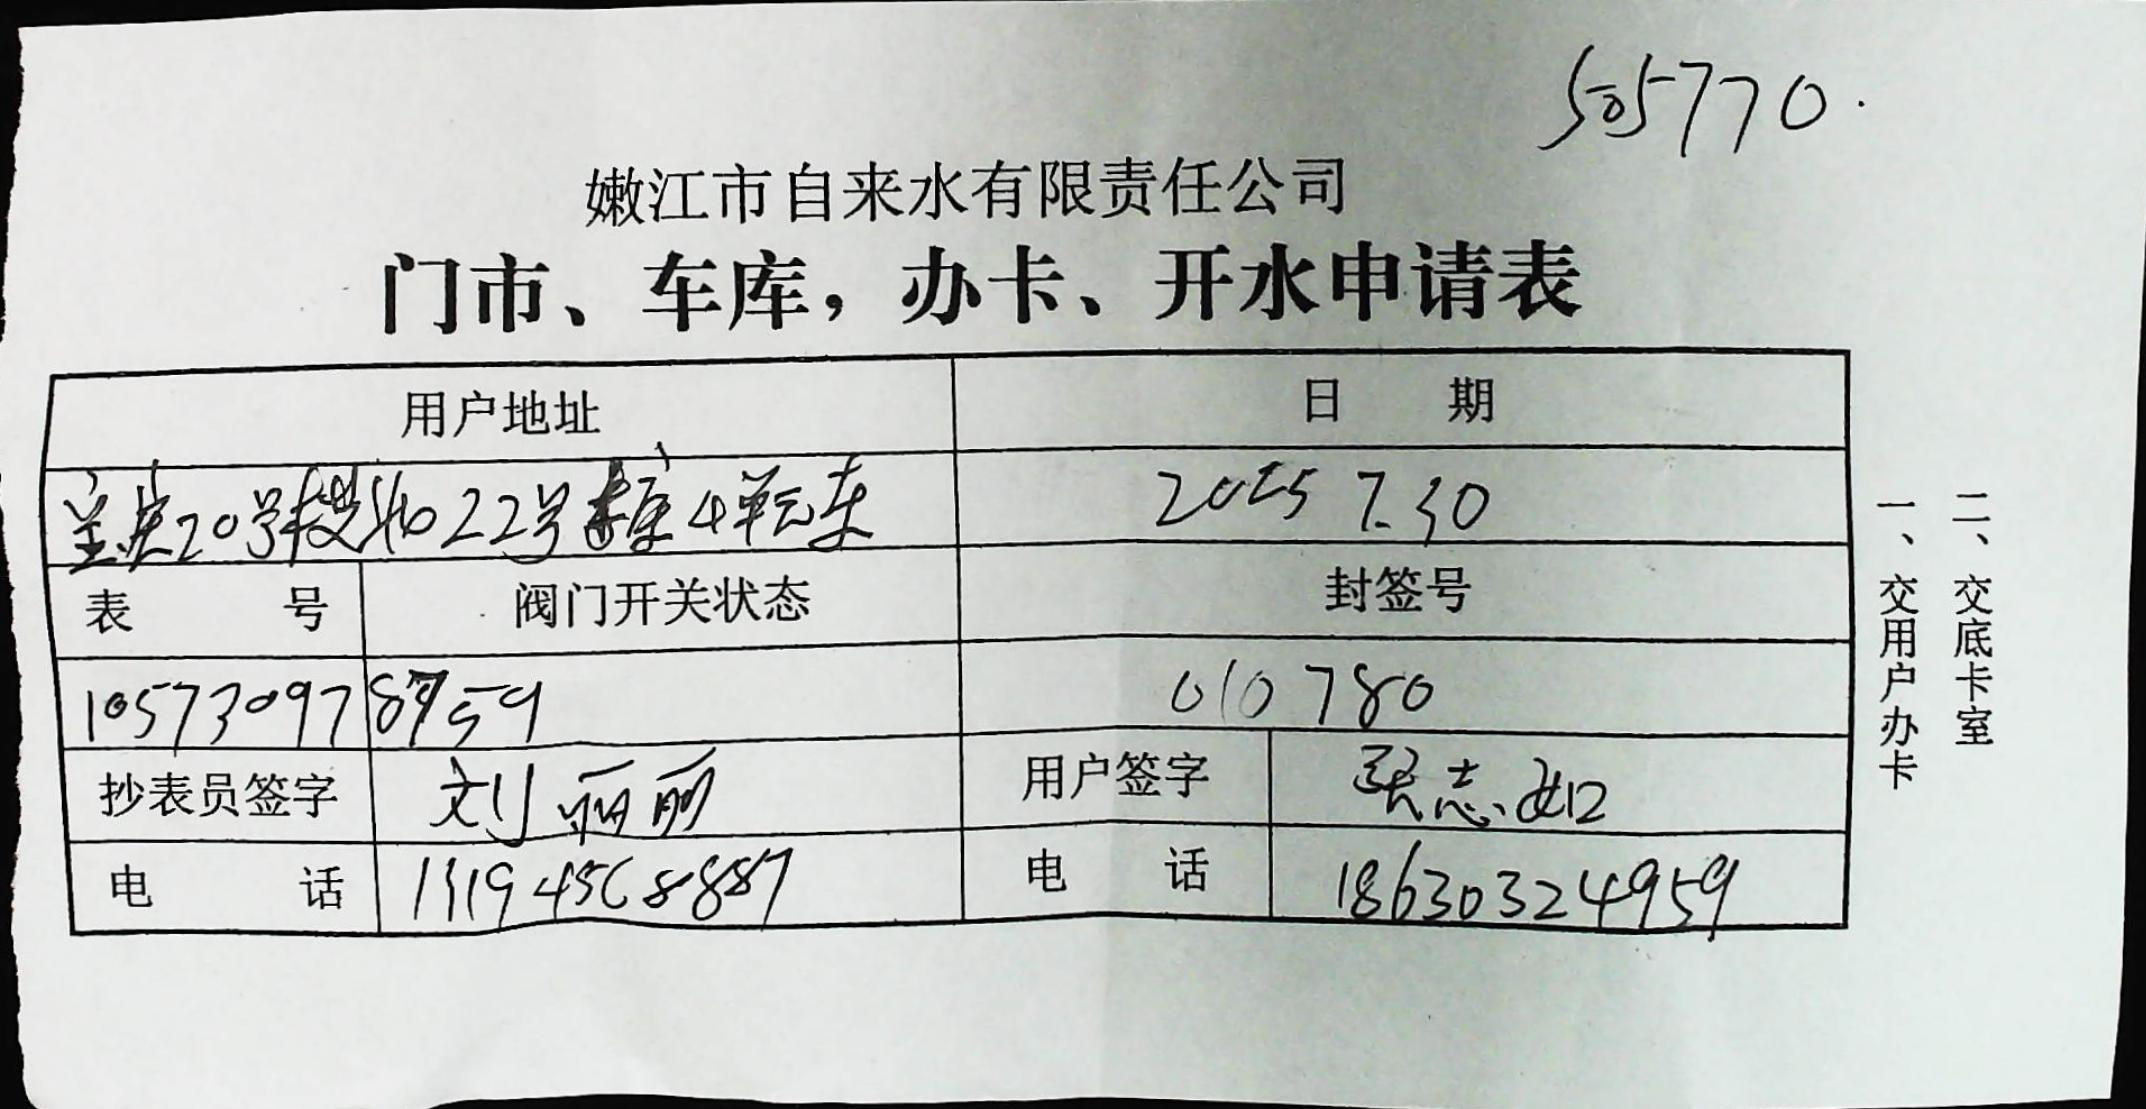 505770.
嫩江市自来水有限责任公司
门市、车库，办卡、开水申请表
用户地址 日 期
20号楼北022号车库4单元东 2025 7.30
表 号 阀门开关状态 封签号
10573097 8759 010780
抄表员签字 刘丽丽 用户签字 张志如
电 话 13194568887 电 话 18630324959
一、交用户办卡
二、交底卡室